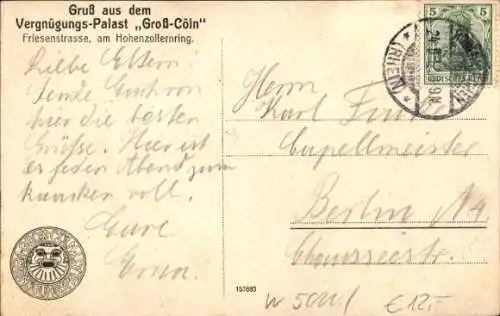 Gruß aus dem
Vergnügungs-Palast „Groß-Cöln"
Friesenstrasse, am Hohenzollernring.
Liebe Eltern!
Sende Euch von
hier die besten
Grüße. Hier ist
es jeden Abend zum
voll.
Eure
Erna.
Herrn
Karl
Capellmeister
Berlin N4
Chausseestr.
157883
5
(RHEIN)
W 501
€ 12,-